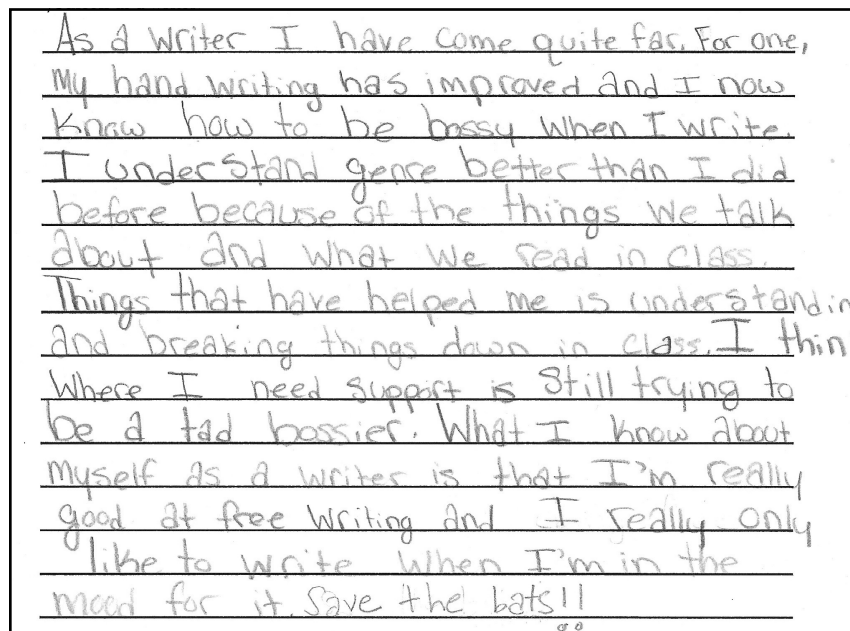 As a writer I have come quite far. For one,
my hand writing has improved and I now
know how to be bossy when I write.
I understand genre better than I did
before because of the things we talk
about and what we read in class.
Things that have helped me is understandin
and breaking things down in class. I thin
Where I need support is still trying to
be a tad bossier. What I know about
myself as a writer is that I'm really
good at free writing and I really only
like to write when I'm in the
mood for it. Save the bats!!